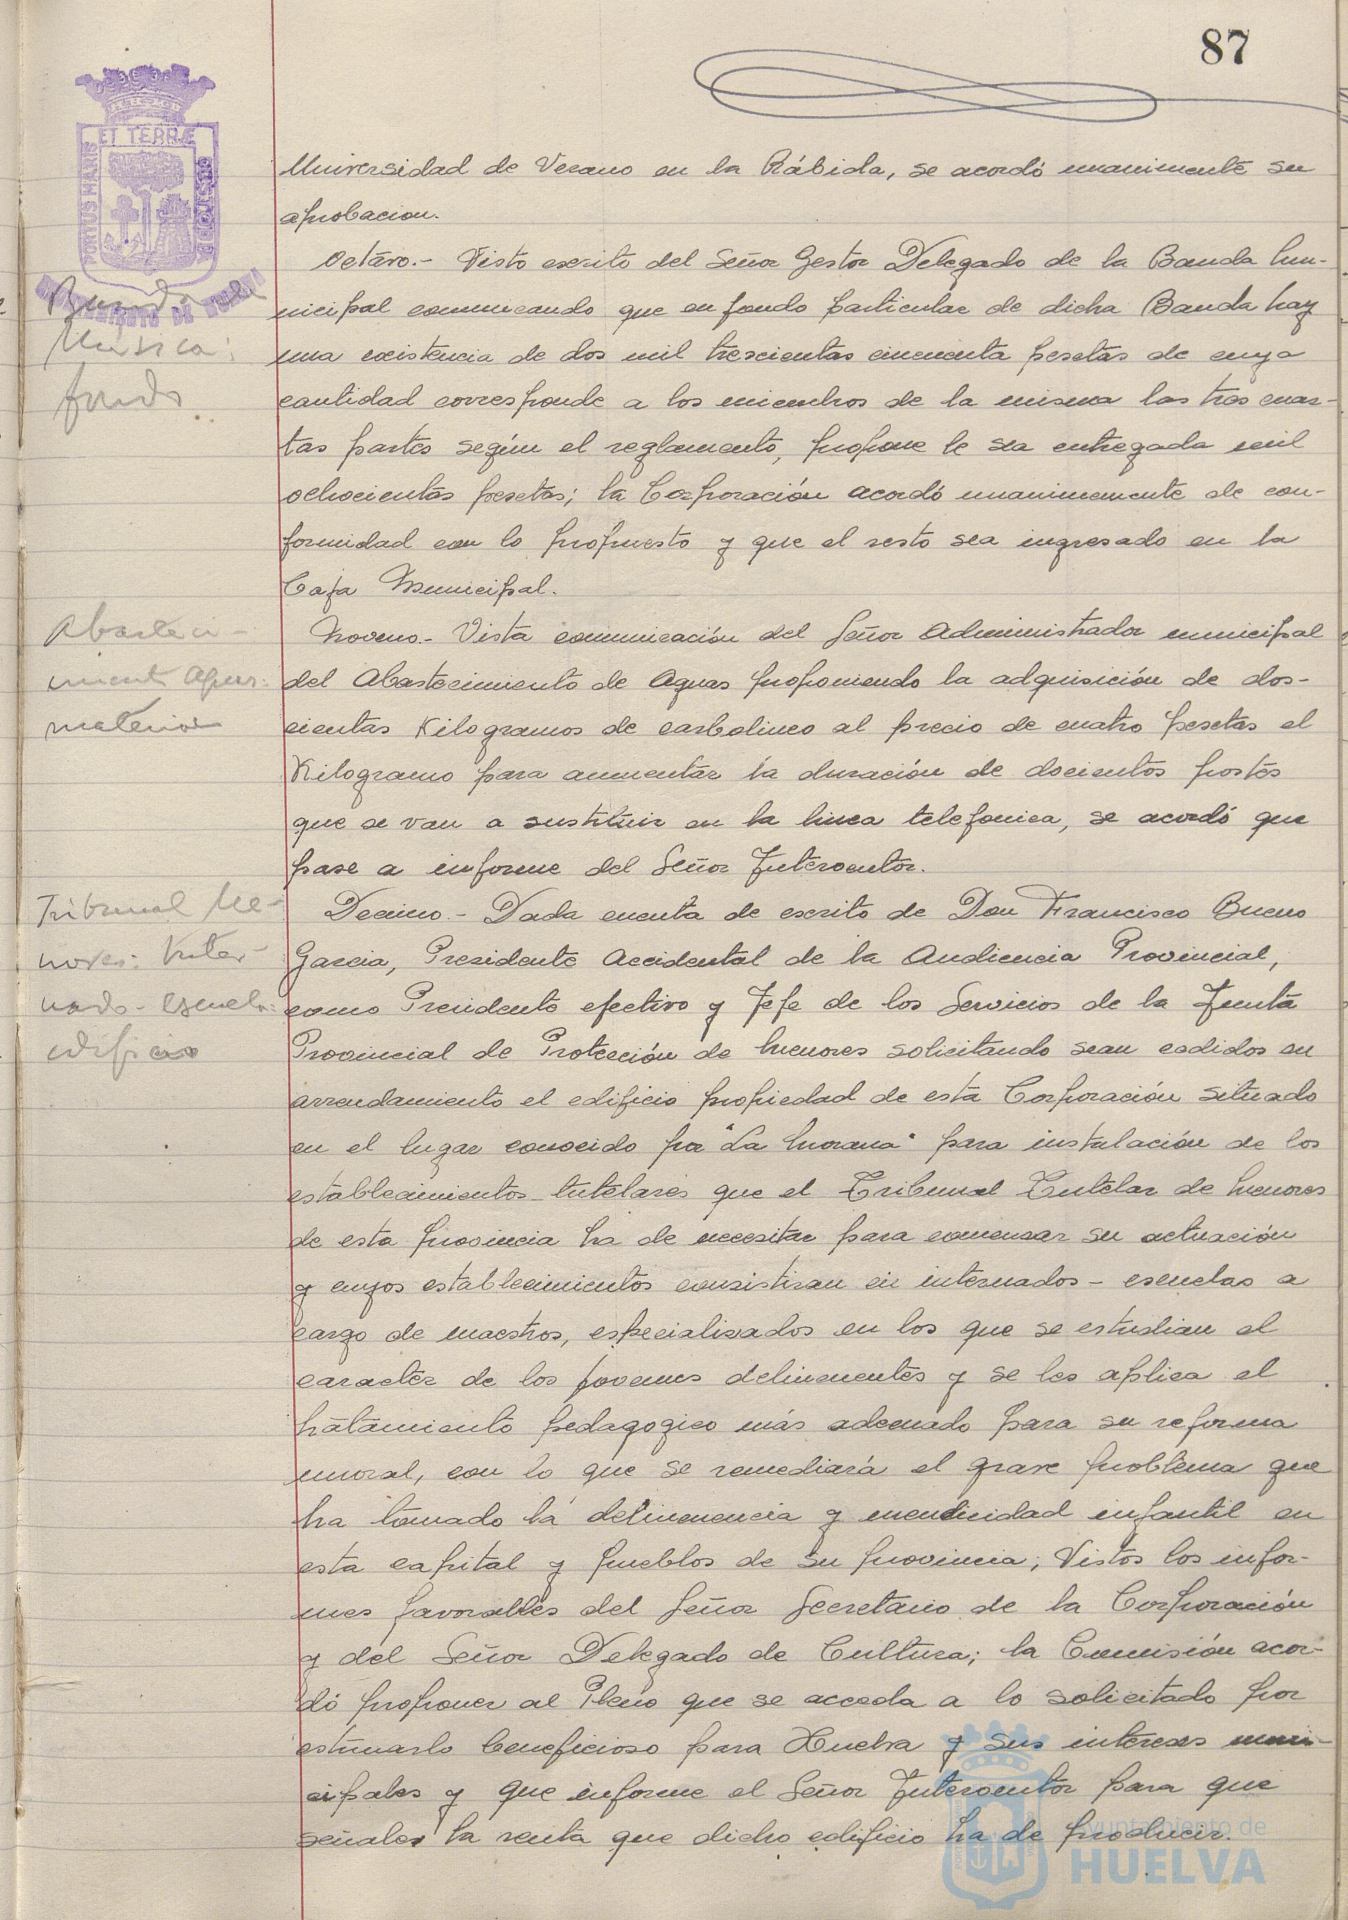 87
PORTUS MARIS
ET TERRÆ
CUSTODIA
AYUNTAMIENTO DE HUELVA
Universidad de Verano en la Rábida, se acordó unanimente su
aprobacion.
Octavo.- Visto escrito del Señor Gestor Delegado de la Banda Mu-
nicipal comunicando que en fondo particular de dicha Banda hay
una existencia de dos mil trescientas cincuenta pesetas de cuya
cantidad corresponde a los miembros de la misma las tres cuar-
tas partes según el reglamento, propone le sea entregada mil
ochocientas pesetas; la Corporación acordó unanimemente de con-
formidad con lo propuesto y que el resto sea ingresado en la
Caja Municipal.
Banda de
Música:
fondo
Noveno.- Vista comunicación del Señor Administrador municipal
del Abastecimiento de Aguas proponiendo la adquisición de dos-
cientas Kilogramos de carbolineo al precio de cuatro pesetas el
Kilogramo para aumentar la duración de docientos postes
que se van a sustituir en la linea telefonica, se acordó que
pase a informe del Señor Interventor.
Abasteci-
miento Aguas:
material
Decimo.- Dada cuenta de escrito de Don Francisco Bueno
Garcia, Presidente Accidental de la Audiencia Provincial,
como Presidente efectivo y Jefe de los Servicios de la Junta
Provincial de Protección de Menores solicitando sean cedidos en
arrendamiento el edificio propiedad de esta Corporación situado
en el lugar conocido por "La Morana" para instalación de los
establecimientos tutelares que el Tribunal Tutelar de Menores
de esta provincia ha de necesitar para comenzar su actuación
y cuyos establecimientos consistiran en internados - escuelas a
cargo de maestros, especialisados en los que se estudian el
caracter de los jovenes delincuentes y se les aplica el
tratamiento pedagogico más adecuado para su reforma
moral, con lo que se remediará el grave problema que
ha tomado la delincuencia y mendicidad infantil en
esta capital y pueblos de su provincia; Vistos los infor-
mes favorables del Señor Secretario de la Corporación
y del Señor Delegado de Cultura; la Comisión acor-
dó proponer al Pleno que se acceda a lo solicitado por
estimarlo beneficioso para Huelva y sus intereses muni-
cipales y que informe el Señor Interventor para que
señale la renta que dicho edificio ha de producir.
Tribunal Me-
nores: Inter-
nado-Escuela:
edificio
Ayuntamiento de
HUELVA